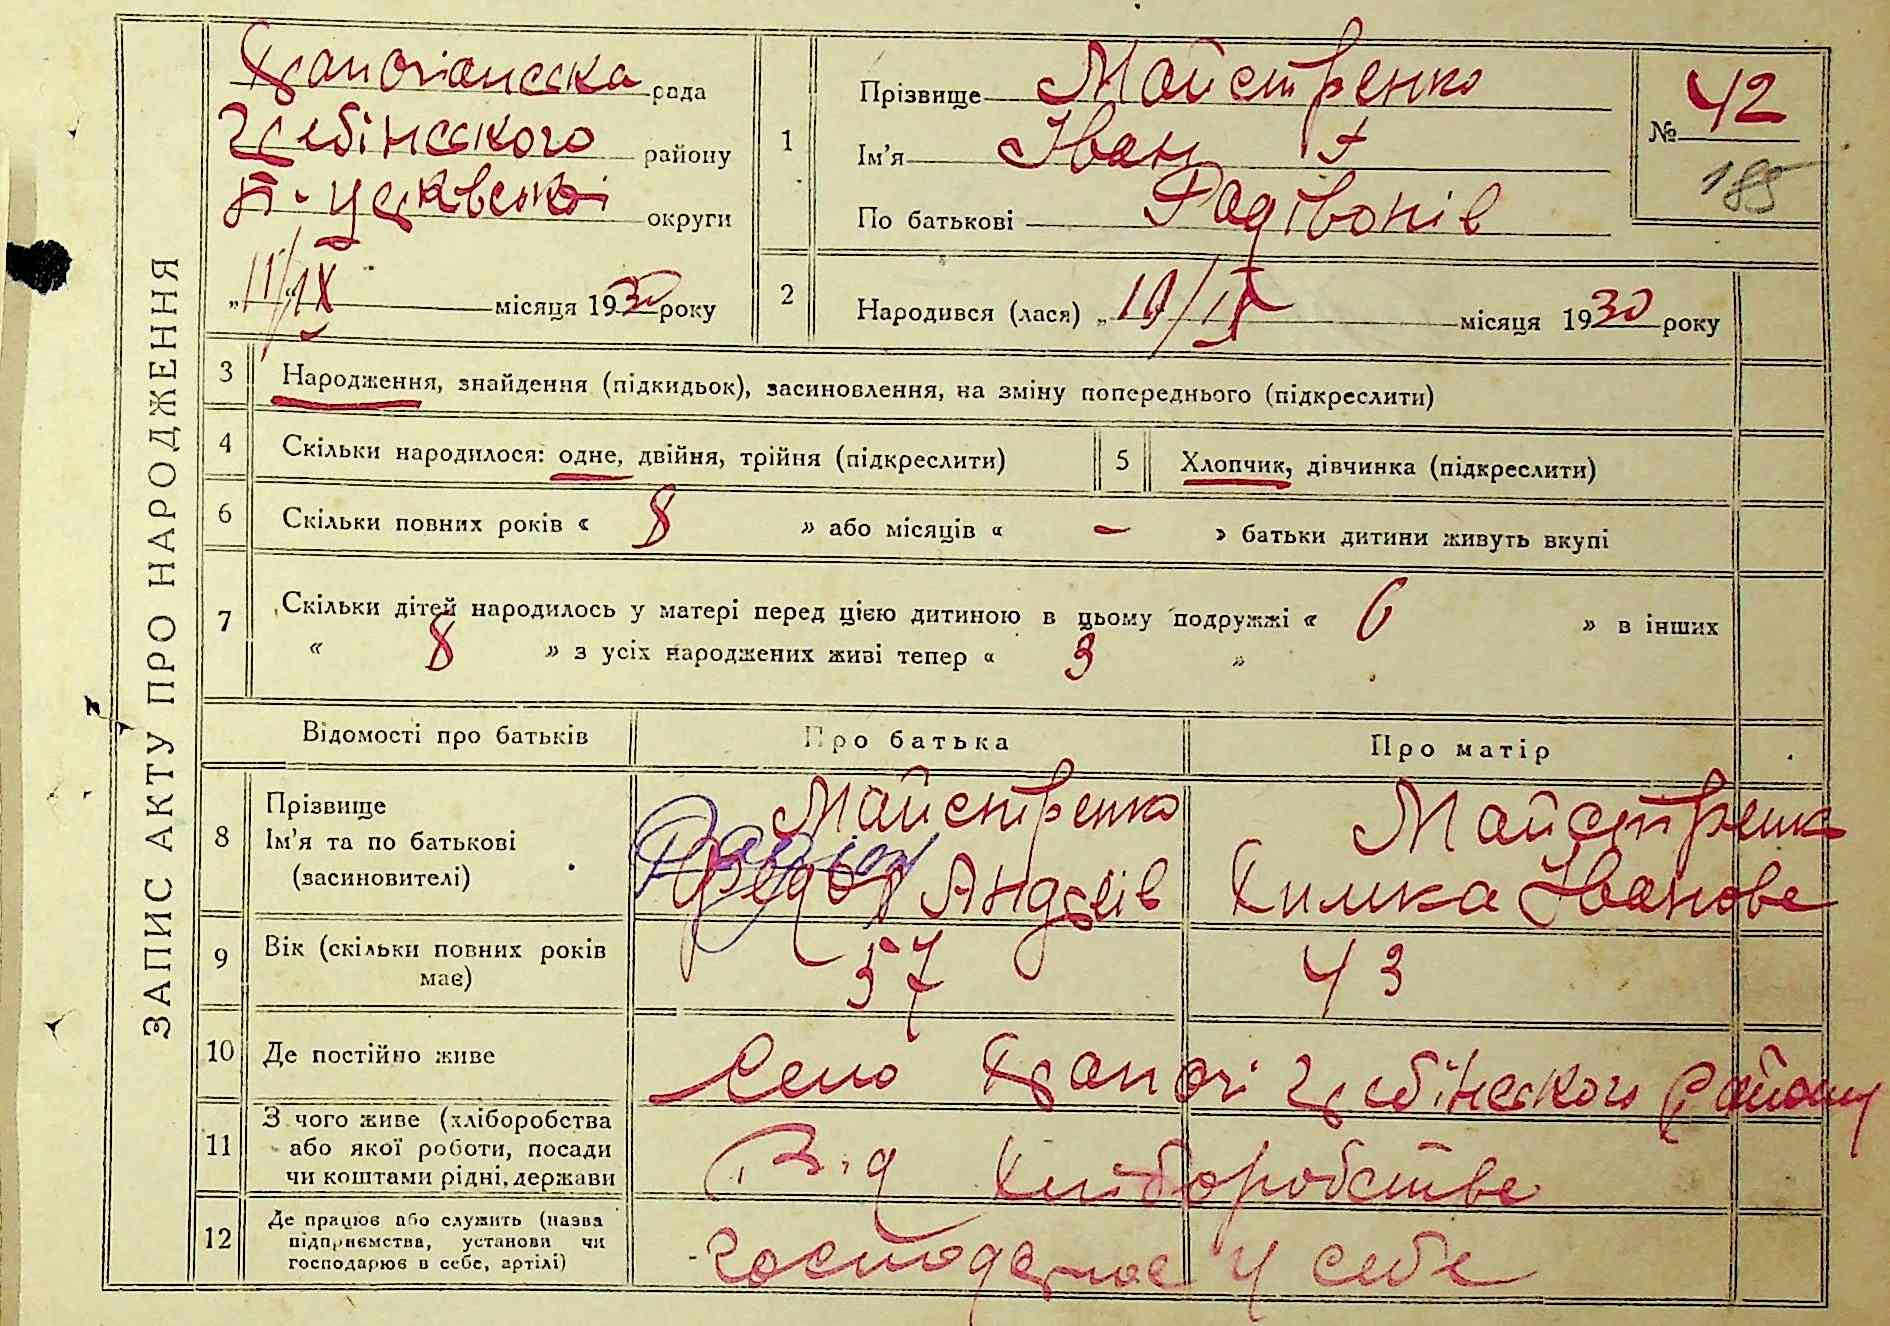 ЗАПИС АКТУ ПРО НАРОДЖЕННЯ
рада
Глебінсского району
округи
„11/IX місяця 1930 року
1
Прізвище Майстренко
Ім'я Іван
По батькові Радівонів
№ 42
185
2
Народився (лася) „10/IX місяця 1930 року
3 Народження, знайдення (підкидьок), засиновлення, на зміну попереднього (підкреслити)
4 Скільки народилося: одне, двійня, трійня (підкреслити) 5 Хлопчик, дівчинка (підкреслити)
6 Скільки повних років « 8 » або місяців « – » батьки дитини живуть вкупі
7 Скільки дітей народилось у матері перед цією дитиною в цьому подружжі « 6 » в інших
« 8 » з усіх народжених живі тепер « 3 »
Відомості про батьків Про батька Про матір
8
Прізвище
Ім'я та по батькові
(засиновителі)
Майстренко
Радіон Андріїв
Майстренк
Химка Іванове
9 Вік (скільки повних років має) 57 43
10 Де постійно живе Село Глебінсского району
11 З чого живе (хліборобства
або якої роботи, посади
чи коштами рідні, держави
Від Хліборобстве
12 Де працює або служить (назва
підприємства, установи чи
господарює в себе, артілі)
господарює у себе